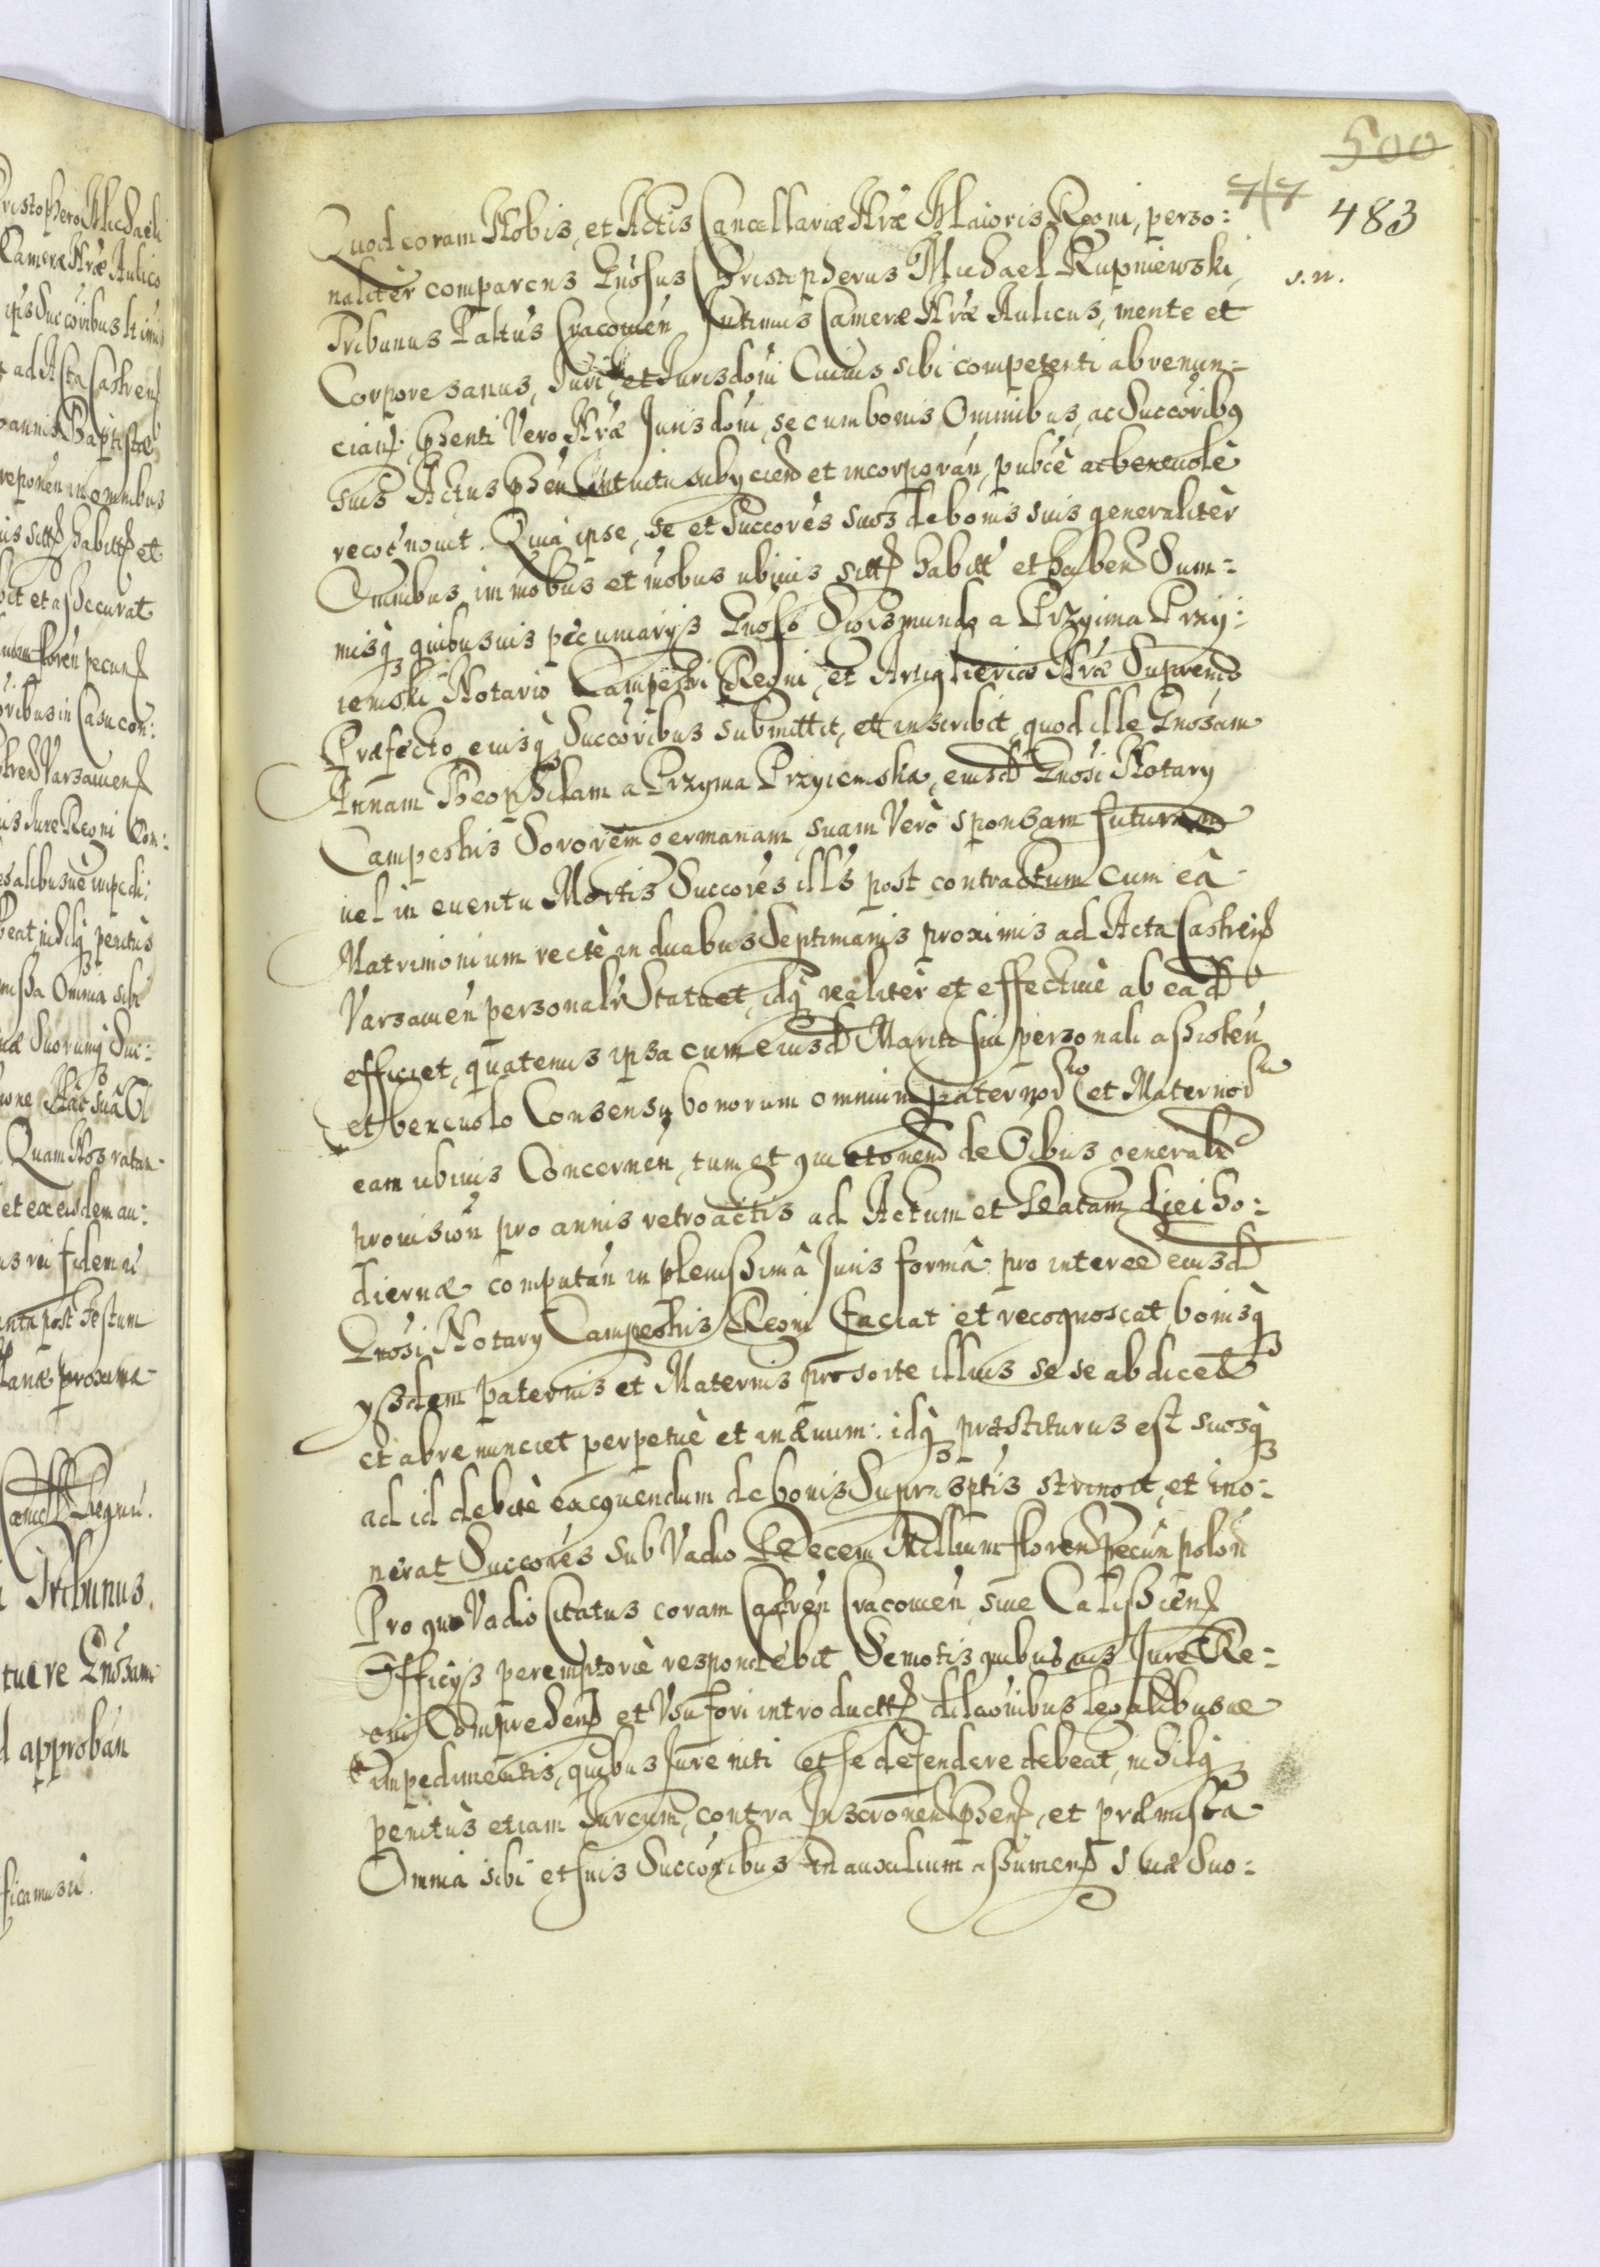 500
477
483
s. n.
Quod coram Nobis, et Actis Cancellariæ Nræ Maioris Regni, perso:
naliter comparens Gnosus Christopherus Michael Rupniewski,
Tribunus Paltus Cracouien, Intimus Cameræ Nræ Aulicus, mente et
Corpore sanus, Juri et Jurisdoni Cuiuis sibi competenti abrenun:
cians, phenti Vero Nræ Jurisdoni, se cum bonis Omnibus, ac Succoribq
suis Actus phen Intuitu subyciend et incorporan, pubce ac beneuole
recognouit. Quia ipse, se et Succores suos de bonis suis generaliter
Omnibus, immobus et mobus ubiuis sitts habitt et haben Sum:
misq quibusuis pecuniarys Gnoso Sigismundo a Przyima Przy:
iemski Notario Campestri Regni, et Artiglieriæ Nræ Supremo
Præfecto eiusq Succoribus submittit, et inscribit, quod ille Gnosam
Annam Theophilam a Przyma Przyiemska, eiusd Gnosi Notary
Campestris Sororem germanam, suam Vero sponsam futuram
uel in euentu Mortis Succores ills post contractum cum eâ
Matrimonium recte in duabus Septimanis proximis ad Acta Castrens
Varsauien personalr Statuet, idq realiter et effectiue ab eâd
efficiet, quatenus ipsa cum eiusd Mariti sui personali assisten
et beneuolo Consensu, bonorum omnium paternor et Maternor
eam ubiuis Concernen, tum et quietonem de Oibus generalr
prouision pro annis retroactis ad Actum et Datam diei ho:
diernæ computan in plenissimâ Juris formâ pro interee eiusd
Gnosi Notary Campestris Regni faciat et recognoscat, bonisq
yssdem paternis et Maternis pro sorte illius sese abdicet
et abrenunciet perpetue et in æuum: idq præstiturus est suosq
ad id debite exequendum de bonis Suprasptis stringit, et ino:
nerat Succores sub Vadio Decem Millium floren Pecun polon
Pro quo Vadio Citatus coram Castren Cracouien, siue Calissiens
Officys peremptorie respondebit Semotis quibusuis Jure Re:
gni Comprehens et Vsu fori introductts dilaonibus legalibusue
impedimentis, quibus Jure niti et se defendere debeat, nihilq
penitus etiam Jurcum, contra Inscronem phens, et præmissa
Omnia sibi et suis Succoribus in auxilium assumens suæ Suo: